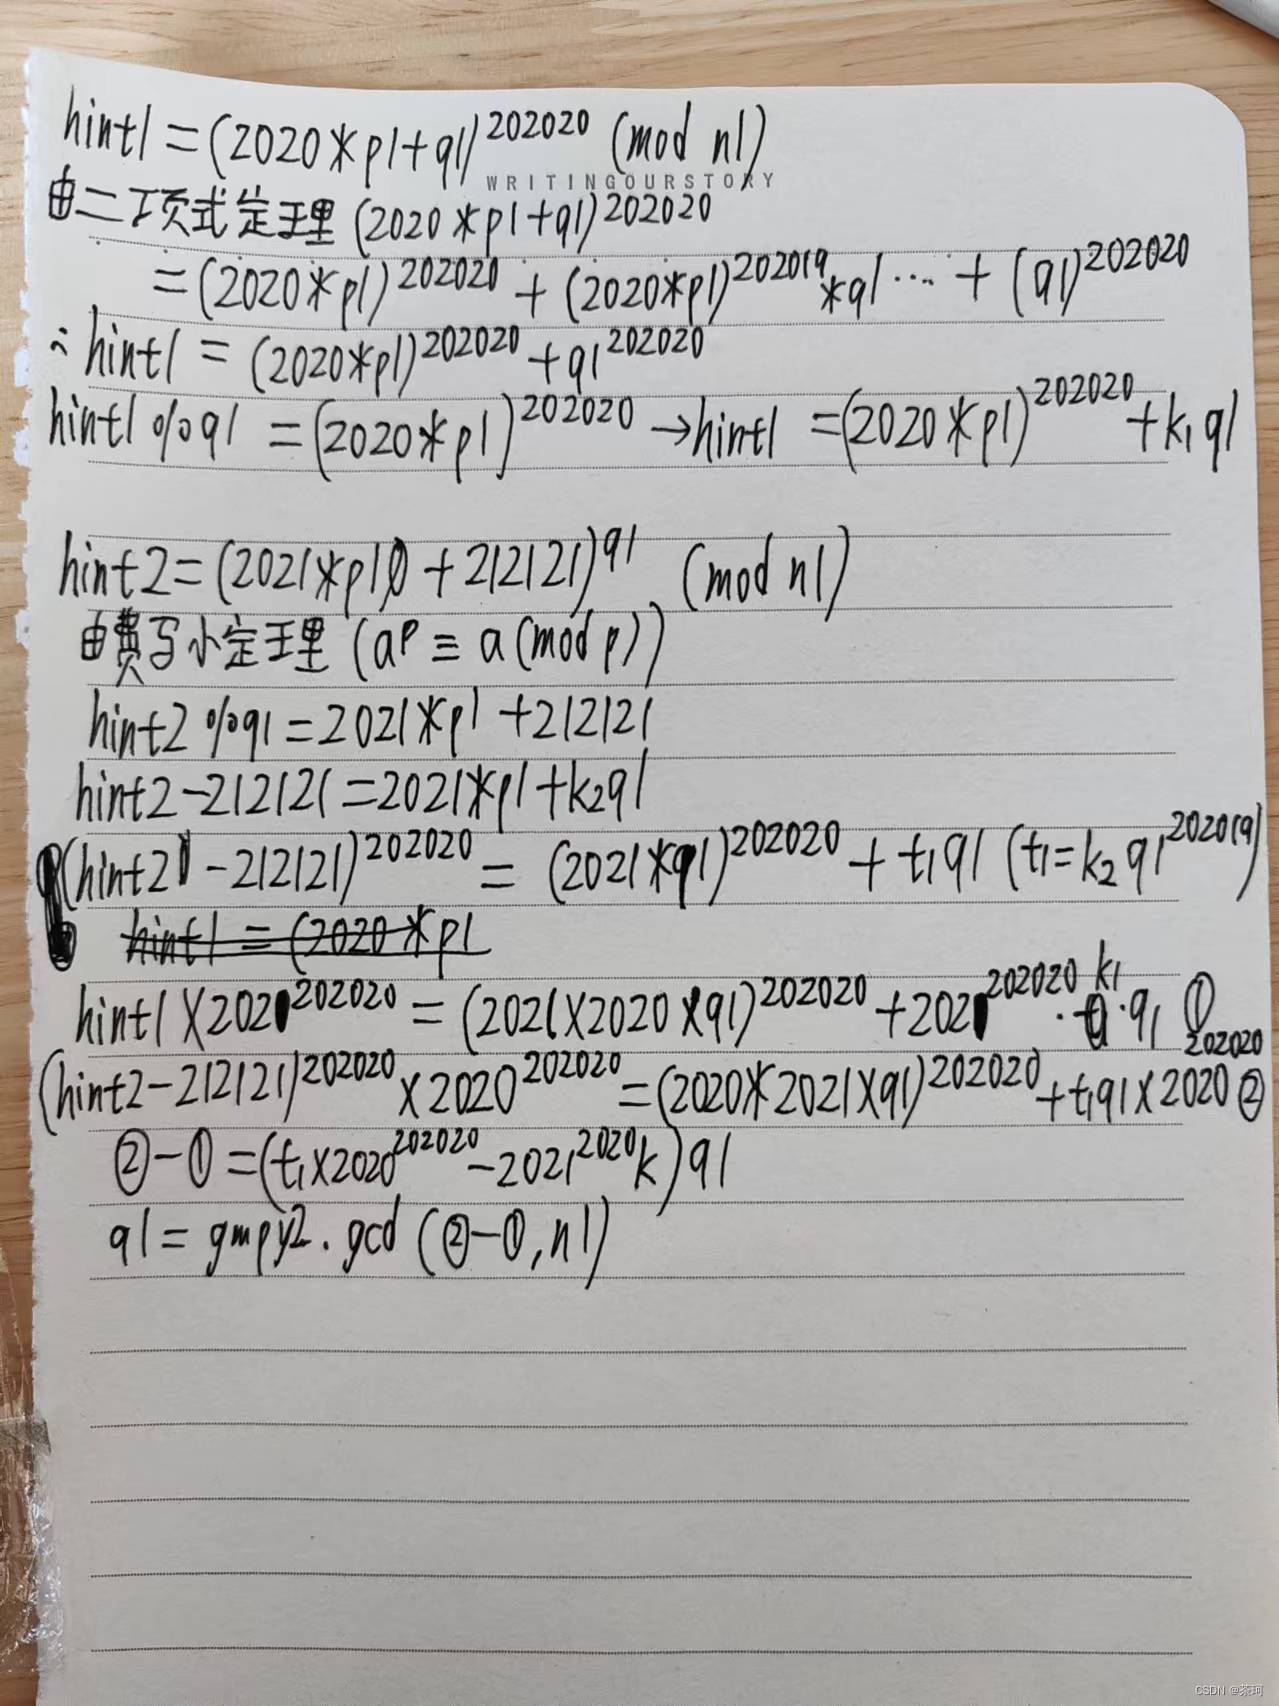 hint1 = (2020*p1+q1)^202020 (mod n1)
WRITINGOURSTORY
由二项式定理 (2020*p1+q1)^202020
=(2020*p1)^202020 + (2020*p1)^202019*q1 ... + (q1)^202020
∴ hint1 = (2020*p1)^202020 + q1^202020
hint1%q1 = (2020*p1)^202020 → hint1 = (2020*p1)^202020 + k₁q1
hint2 = (2021*p1 + 212121)^q1 (mod n1)
由费马小定理 (a^p ≡ a (mod p))
hint2%q1 = 2021*p1 + 212121
hint2-212121 = 2021*p1 + k₂q1
(hint2 - 212121)^202020 = (2021*q1)^202020 + t₁q1 (t₁=k₂q1^202019)
hint1 = (2020*p1
hint1×2021^202020 = (2021×2020×q1)^202020 + 2021^202020·k₁·q1 ①
(hint2-212121)^202020×2020^202020 = (2020*2021×q1)^202020 + t₁q1×2020^202020 ②
②-① = (t₁×2020^202020 - 2021^2020k)q1
q1 = gmpy2.gcd(②-①, n1)
CSDN @芬珂